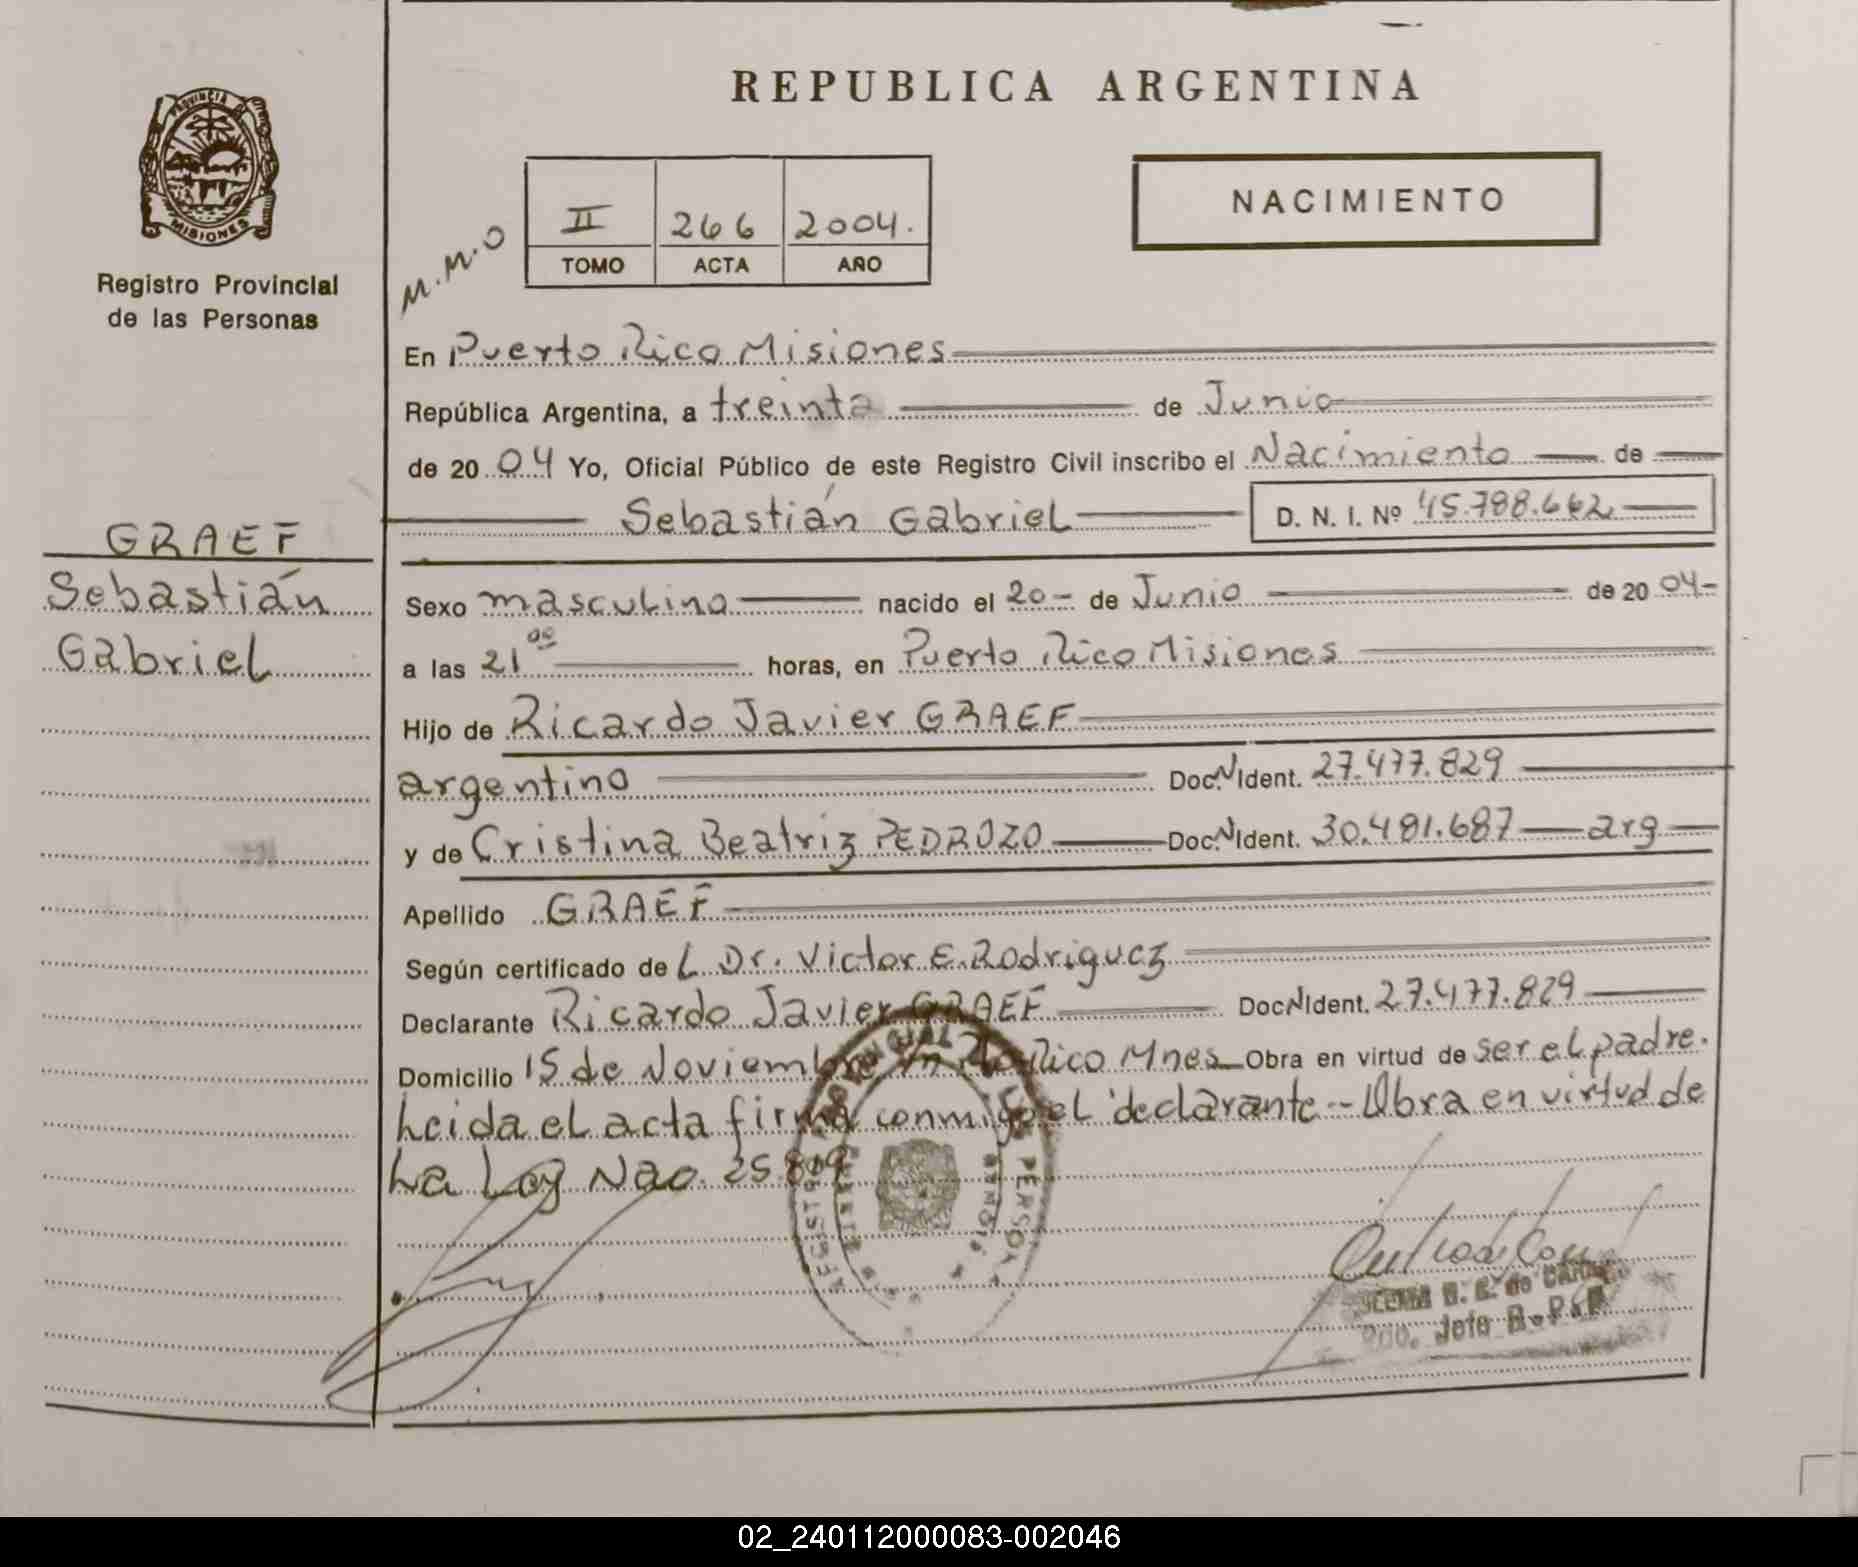 REPUBLICA ARGENTINA
PROVINCIA DE
MISIONES
Registro Provincial
de las Personas
NACIMIENTO
M.M.O
II 266 2004.
TOMO ACTA AÑO
En Puerto Rico Misiones
República Argentina, a treinta de Junio
de 2004 Yo, Oficial Público de este Registro Civil inscribo el Nacimiento de
Sebastián Gabriel D. N. I. Nº 45.788.662
GRAEF
Sebastián
Gabriel
Sexo masculino nacido el 20 de Junio de 2004
a las 21 00 horas, en Puerto Rico Misiones
Hijo de Ricardo Javier GRAEF
argentino Doc. N Ident. 27.477.829
y de Cristina Beatriz PEDROZO Doc. N Ident. 30.481.687 arg
Apellido GRAEF
Según certificado de L Dr. Victor E. Rodriguez
Declarante Ricardo Javier GRAEF Doc N Ident. 27.477.829
Domicilio 15 de Noviembre Rico Mnes Obra en virtud de ser el padre.
Leida el acta firma conmigo el declarante-- Obra en virtud de
La Ley Nac. 25.809
Jefe R.P.P.
02_240112000083-002046